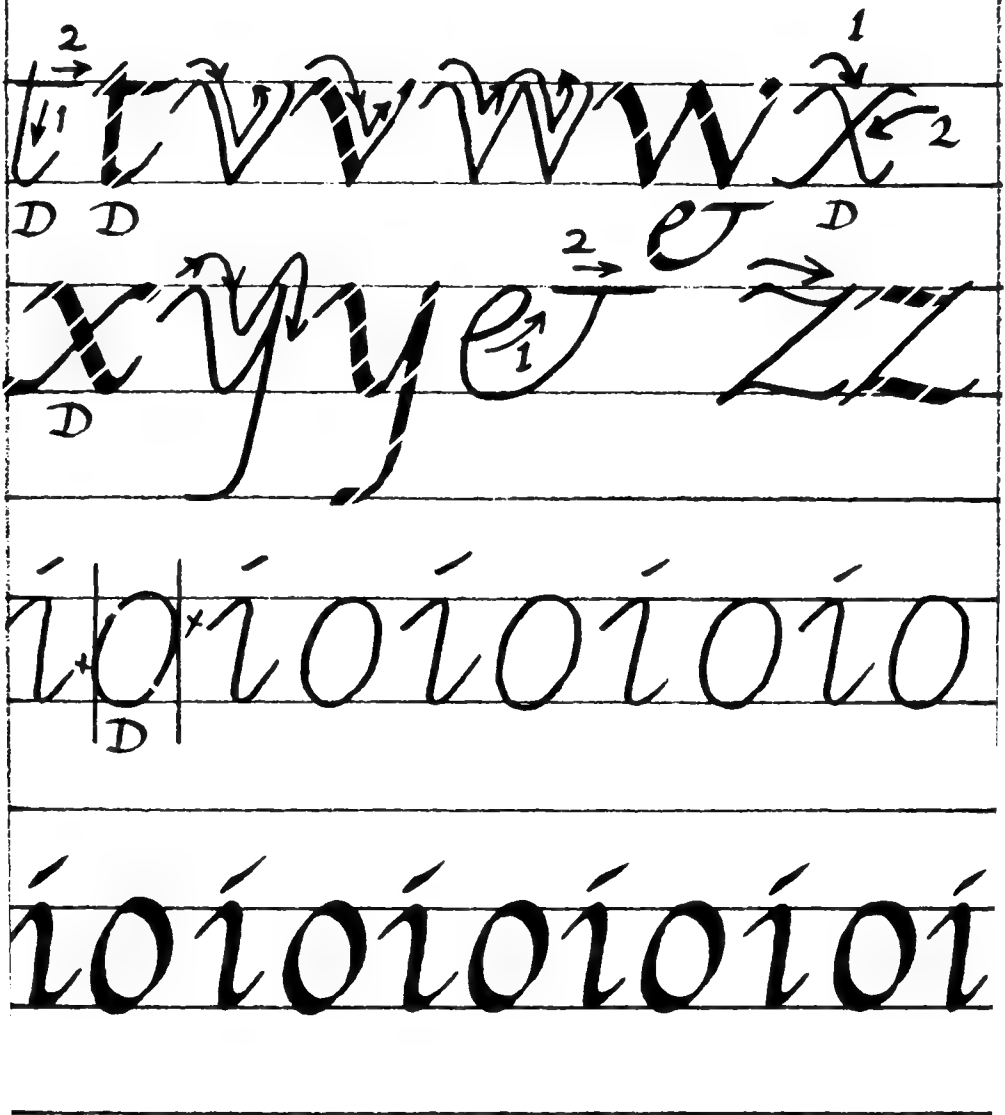 2 1
t t v v w w x
1 2
D D e D
2
x y y e z z
1
D
i o i o i o i o i o
D
i o i o i o i o i o i